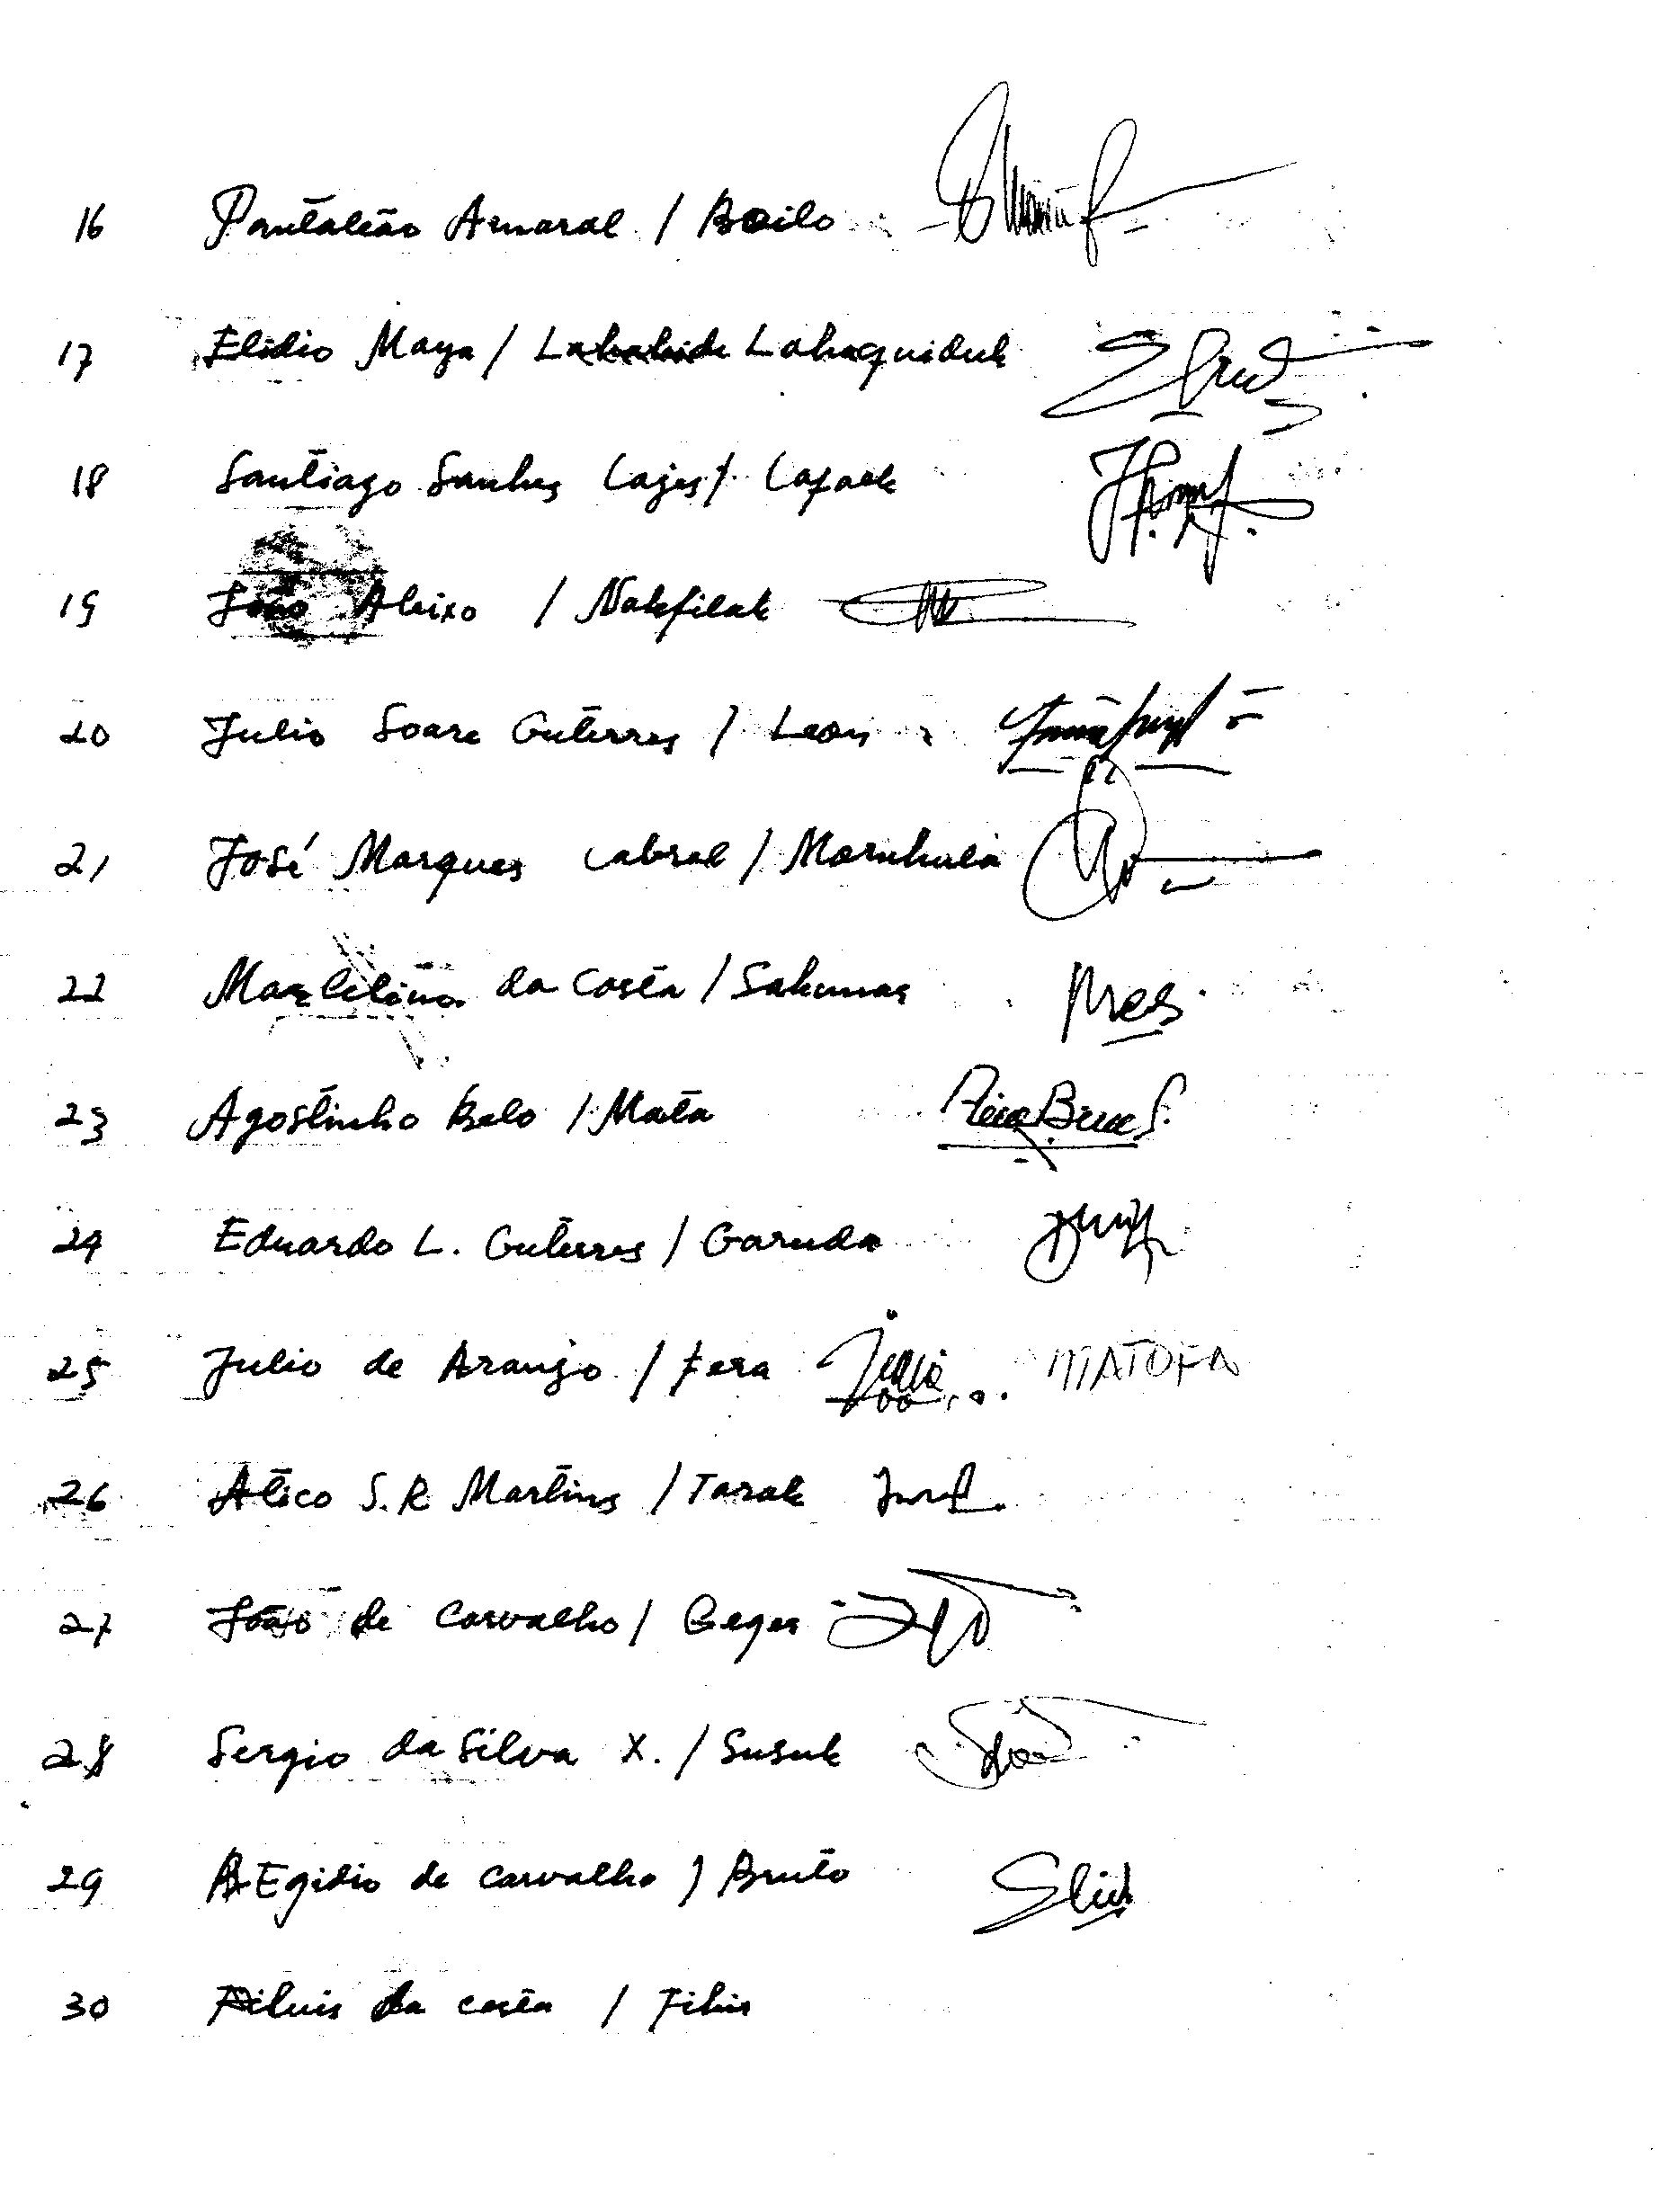 16 Pantaleão Amaral / Boilo
17 Elidio Maya / Lahaquiduk
18 Santiago Sanhes Cajes / Lafaek
19 João Aleixo / Nakfilak
20 Julio Soare Guterres / Leon
21 José Marques Cabral / Maruhula
22 da Costa / Sakunar
23 Agostinho Belo / Mata
24 Eduardo L. Guterres / Garuda
25 Julio de Araujo / Fera MATOFA
26 Atico S.R Martins / Tarak
27 João de Carvalho / Geger
28 Sergio da Silva X. / Susuk
29 Egidio de Carvalho / Bruto
30 da Costa /